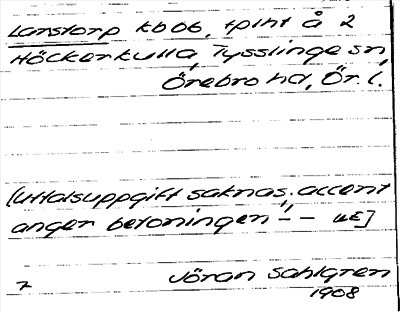 Lanstorp kbo6, tplht å 2
Höckerkulla, Tysslinge sn,
Örebro hd, Ör. l.
(Uttalsuppgift saknas; accent
anger betoningen –́ – WE]
Jöran Sahlgren
1908